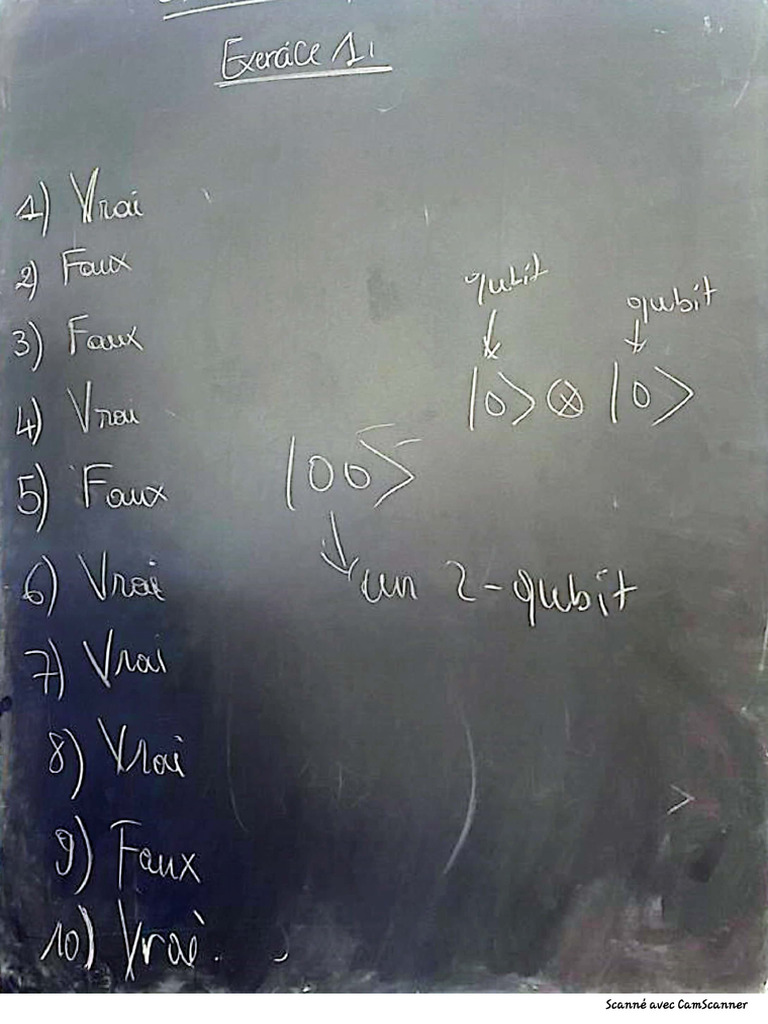 Exercice 1:
1) Vrai
2) Faux
3) Faux
4) Vrai
5) Faux
6) Vrai
7) Vrai
8) Vrai
9) Faux
10) Vrai.
qubit qubit
↓ ↓
|0> ⊗ |0>
|00>
↓
un 2-qubit
>
Scanné avec CamScanner